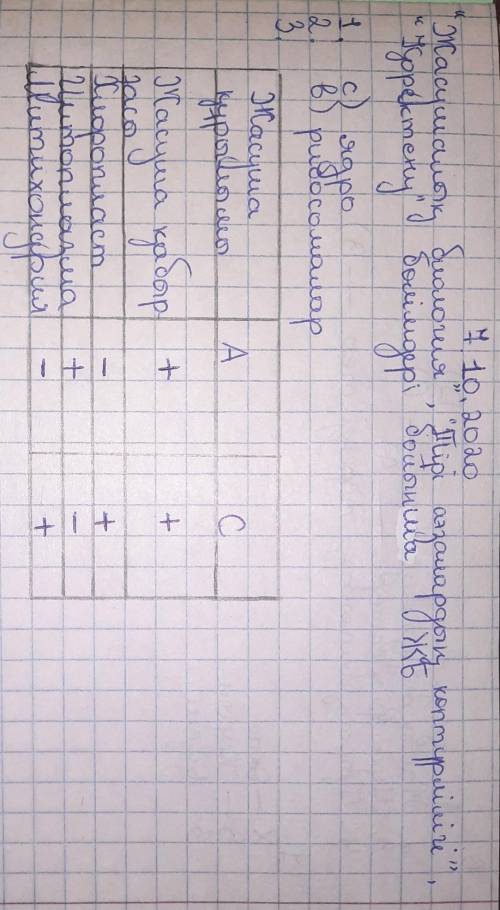 7 10, 2020
"Жасушалық биология", "Тірі ағзалардың көптүрлілігі",
"Қоректену" бөлімдері бойынша ЖБ
1. с) ядро
2. в) рибосомалар
3.
Жасуша құрылымы А С
Жасуша қабырғасы + +
Хлоропласт - +
Цитоплазма + -
Митохондрия - +